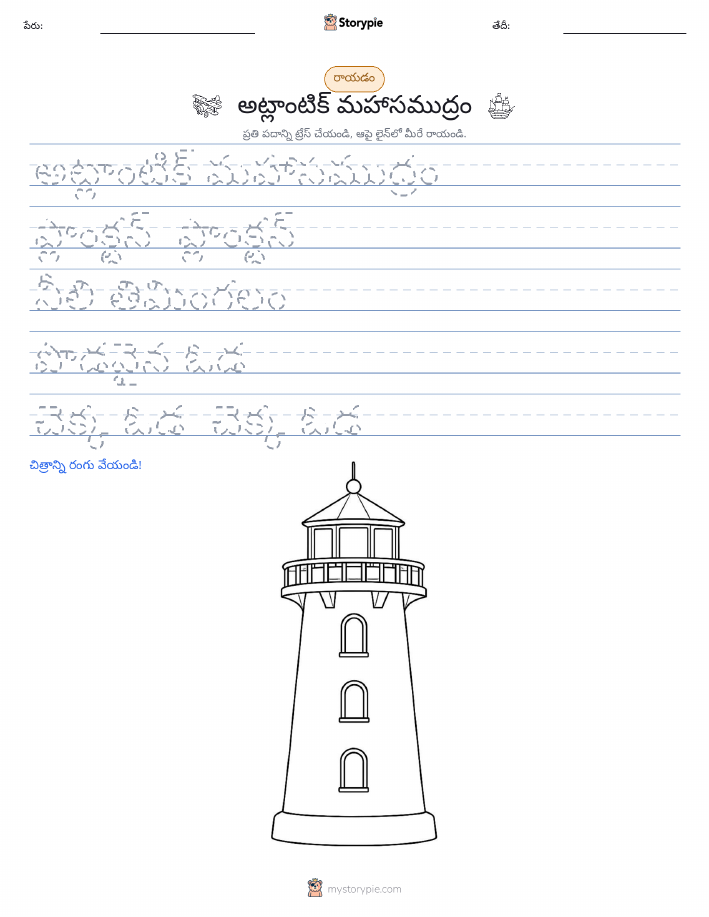 పేరు:
Storypie
తేదీ:
రాయడం
అట్లాంటిక్ మహాసముద్రం
ప్రతి పదాన్ని ట్రేస్ చేయండి, ఆపై లైన్‌లో మీరే రాయండి.
అట్లాంటిక్ మహాసముద్రం
ప్లాంక్టన్ ప్లాంక్టన్
నీలి తిమింగలం
పొడవైన ఓడ
చెక్క ఓడ చెక్క ఓడ
చిత్రాన్ని రంగు వేయండి!
mystorypie.com